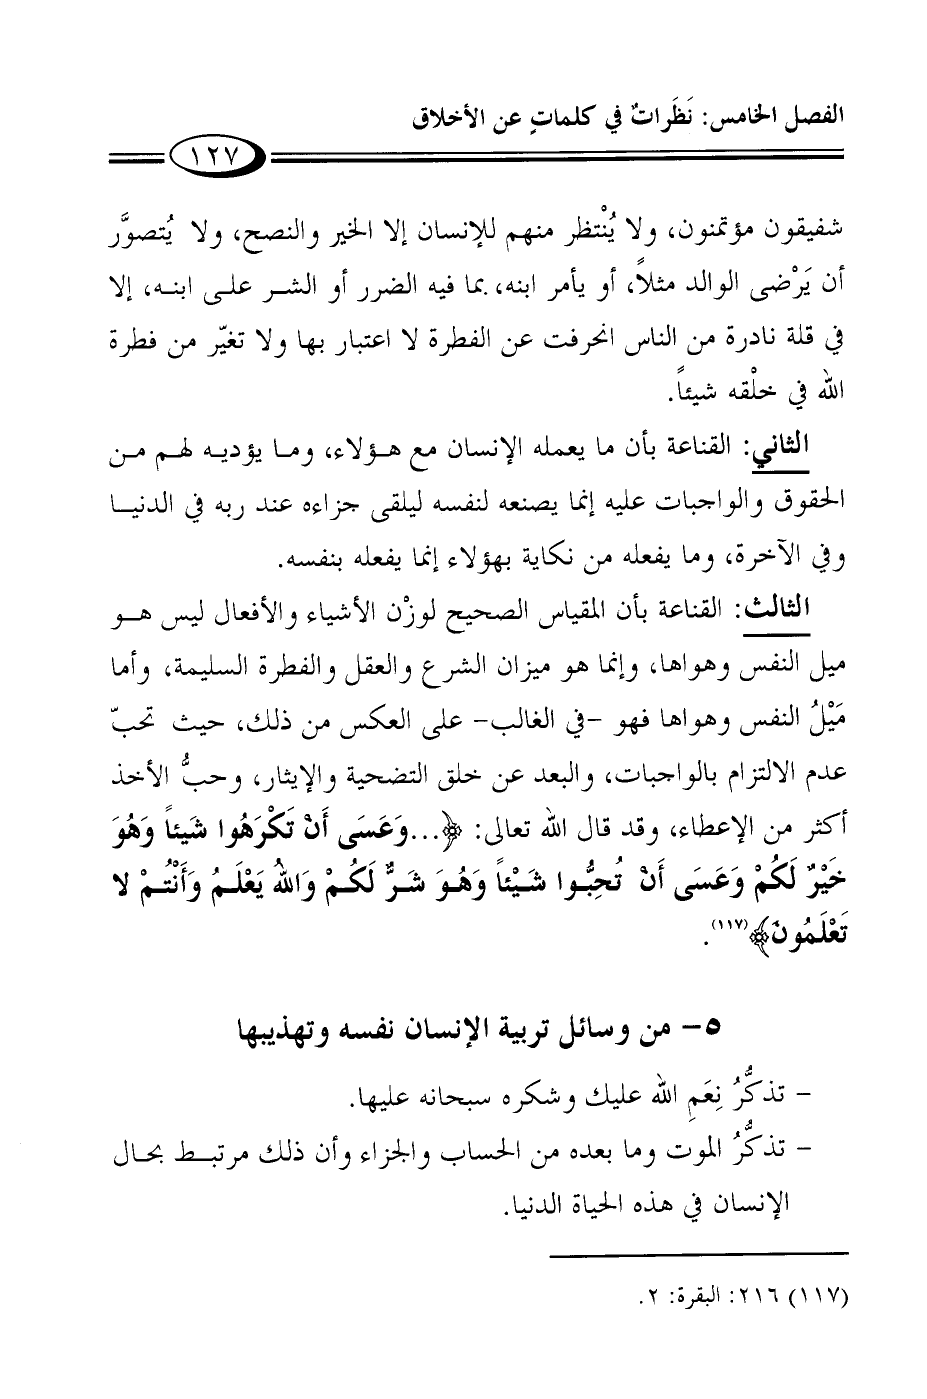 الفصل الخامس: نَظَراتٌ في كلماتٍ عن الأخلاق
١٢٧
شفيقون مؤتمنون، ولا يُنْتظر منهم للإنسان إلا الخير والنصح، ولا يُتصوَّر
أن يَرْضى الوالد مثلاً، أو يأمر ابنه، بما فيه الضرر أو الشر على ابنه، إلا
في قلة نادرة من الناس انحرفت عن الفطرة لا اعتبار بها ولا تغيّر من فطرة
الله في خلْقه شيئاً.
الثاني: القناعة بأن ما يعمله الإنسان مع هؤلاء، وما يؤديه لهم من
الحقوق والواجبات عليه إنما يصنعه لنفسه ليلقى جزاءه عند ربه في الدنيا
وفي الآخرة، وما يفعله من نكاية بهؤلاء إنما يفعله بنفسه.
الثالث: القناعة بأن المقياس الصحيح لوزْن الأشياء والأفعال ليس هو
ميل النفس وهواها، وإنما هو ميزان الشرع والعقل والفطرة السليمة، وأما
مَيْلُ النفس وهواها فهو -في الغالب- على العكس من ذلك، حيث تحبّ
عدم الالتزام بالواجبات، والبعد عن خلق التضحية والإيثار، وحبُّ الأخذ
أكثر من الإعطاء، وقد قال الله تعالى: ﴿...وَعَسَى أَنْ تَكْرَهُوا شَيئاً وَهُوَ
خَيْرٌ لَكُمْ وَعَسَى أَنْ تُحِبُّوا شَيْئاً وَهُوَ شَرٌّ لَكُمْ وَاللهُ يَعْلَمُ وَأَنْتُمْ لا
تَعْلَمُونَ﴾(١١٧).
٥- من وسائل تربية الإنسان نفسه وتهذيبها
- تذكُّرُ نِعَمِ الله عليك وشكره سبحانه عليها.
- تذكُّرُ الموت وما بعده من الحساب والجزاء وأن ذلك مرتبط بحال
الإنسان في هذه الحياة الدنيا.
(١١٧) ٢١٦: البقرة: ٢.